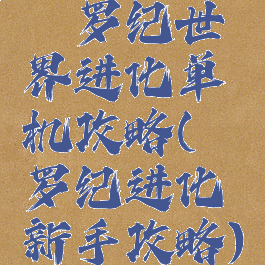 罗纪世
界进化单
机攻略(
罗纪进化
新手攻略)